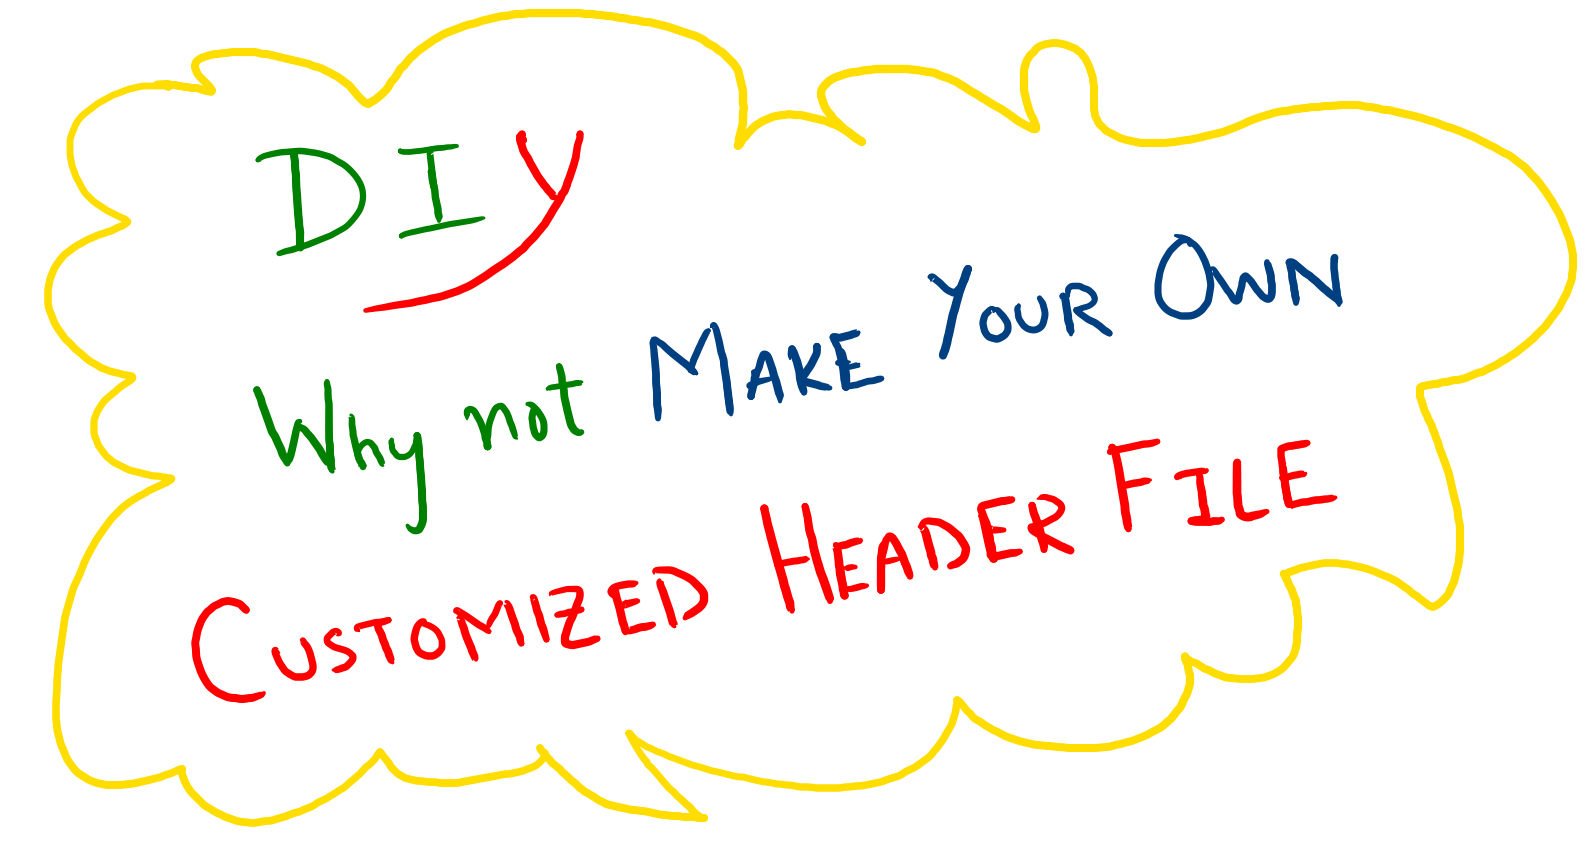 DIY
Why not MAKE YOUR OWN
CUSTOMIZED HEADER FILE